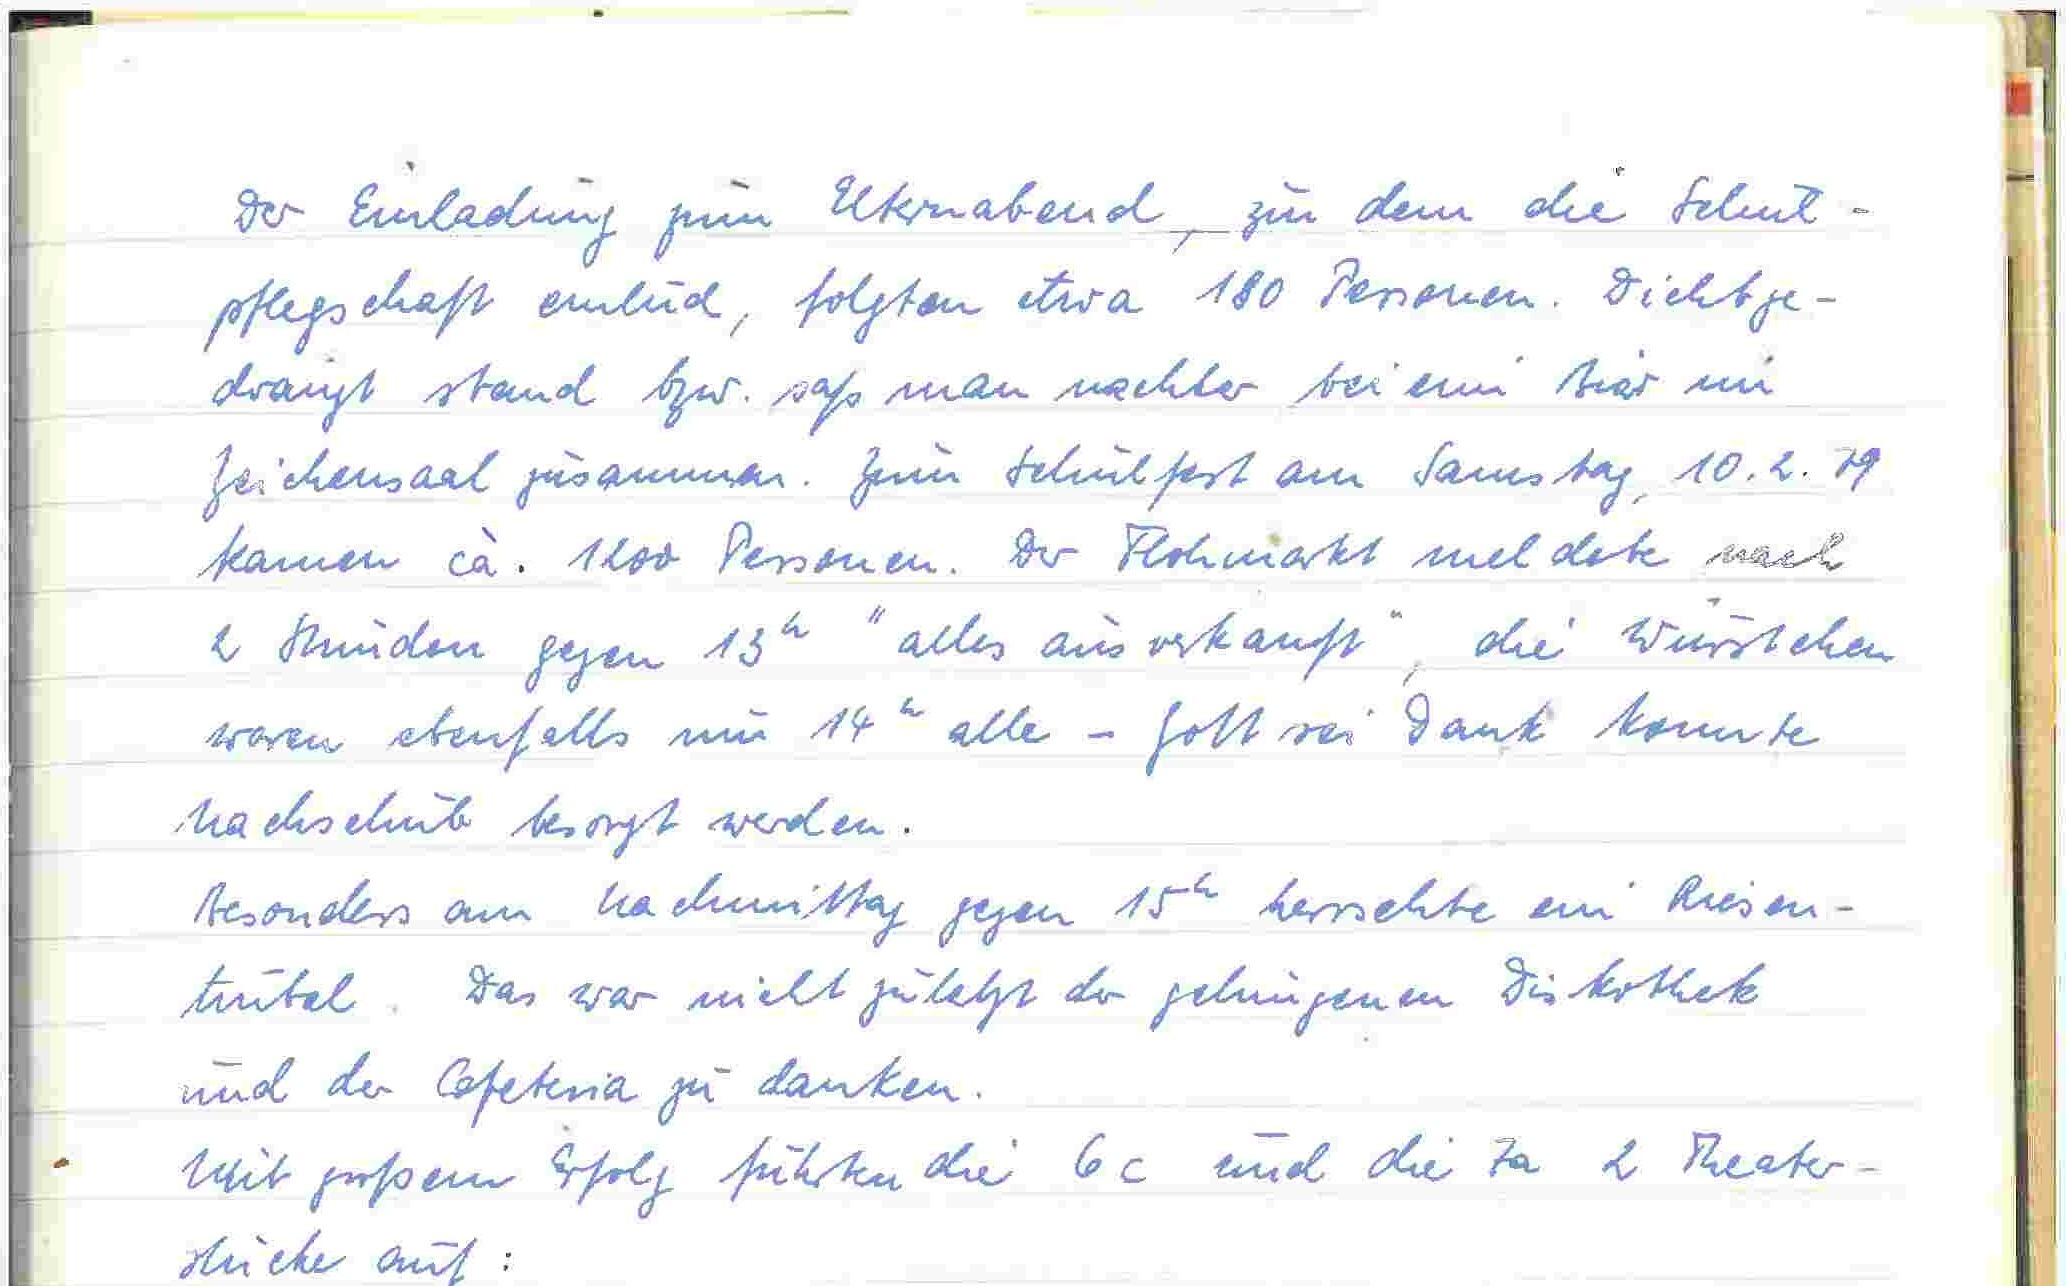 Der Einladung zum Elternabend, zu dem die Schul-
pflegschaft einlud, folgten etwa 180 Personen. Dichtge-
drängt stand bzw. saß man nachher bei ein Bier im
Zeichensaal zusammen. Zum Schulfest am Samstag, 10.2.79
kamen cà. 1200 Personen. Der Flohmarkt meldete nach
2 Stunden gegen 13h "alles ausverkauft", die Würstchen
waren ebenfalls um 14h alle - Gott sei Dank konnte
Nachschub besorgt werden.
Besonders am Nachmittag gegen 15h herrschte ein Riesen-
trubel. Das war nicht zuletzt der gelungenen Diskothek
und der Cafeteria zu danken.
Mit großem Erfolg führten die 6c und die 7a 2 Theater-
stücke auf: